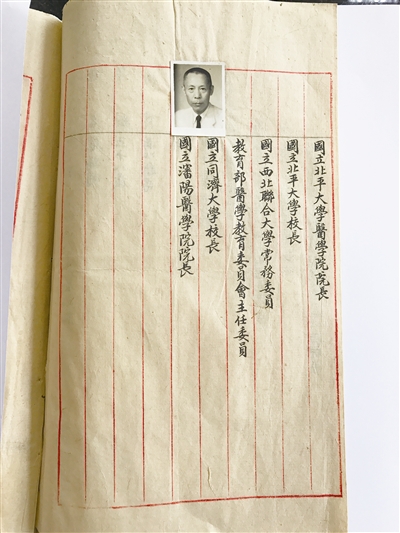 國立北平大學醫學院院長
國立北平大學校長
國立西北聯合大學常務委員
教育部醫學教育委員會主任委員
國立同濟大學校長
國立瀋陽醫學院院長